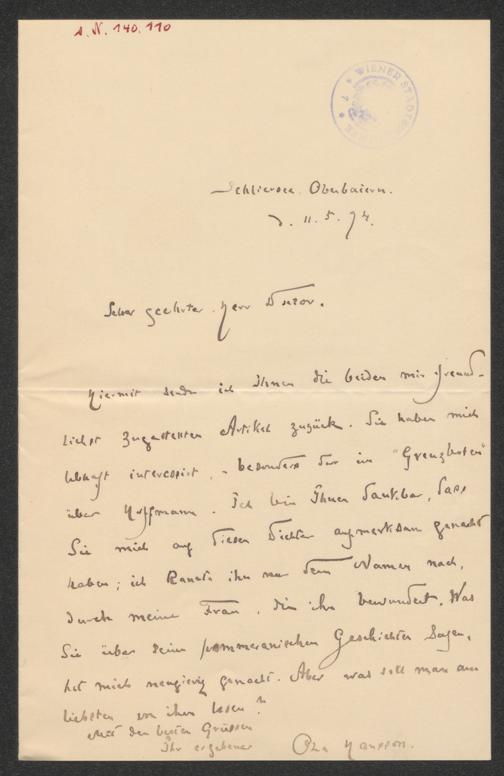 A. N. 140.110
WIENER STADT
Schliersee, Oberbaiern.
d. 11. 5. 94.
Sehr geehrter Herr Doctor.
Hiermit sende ich Ihnen die beiden mir freund-
lichst zugestellten Artikel zurück. Sie haben mich
lebhaft interessirt, - besonders der im "Grenzboten"
über Hoffmann. Ich bin Ihnen dankbar, dass
Sie mich auf diesen Dichter aufmerksam gemacht
haben; ich kannte ihn nur dem Namen nach,
durch meine Frau, die ihn bewundert. Was
Sie über seine pommeranischen Geschichten sagen,
hat mich neugierig gemacht. Aber was soll man am
liebsten von ihm lesen?
Mit den besten Grüssen
Ihr ergebener Ola Hansson.